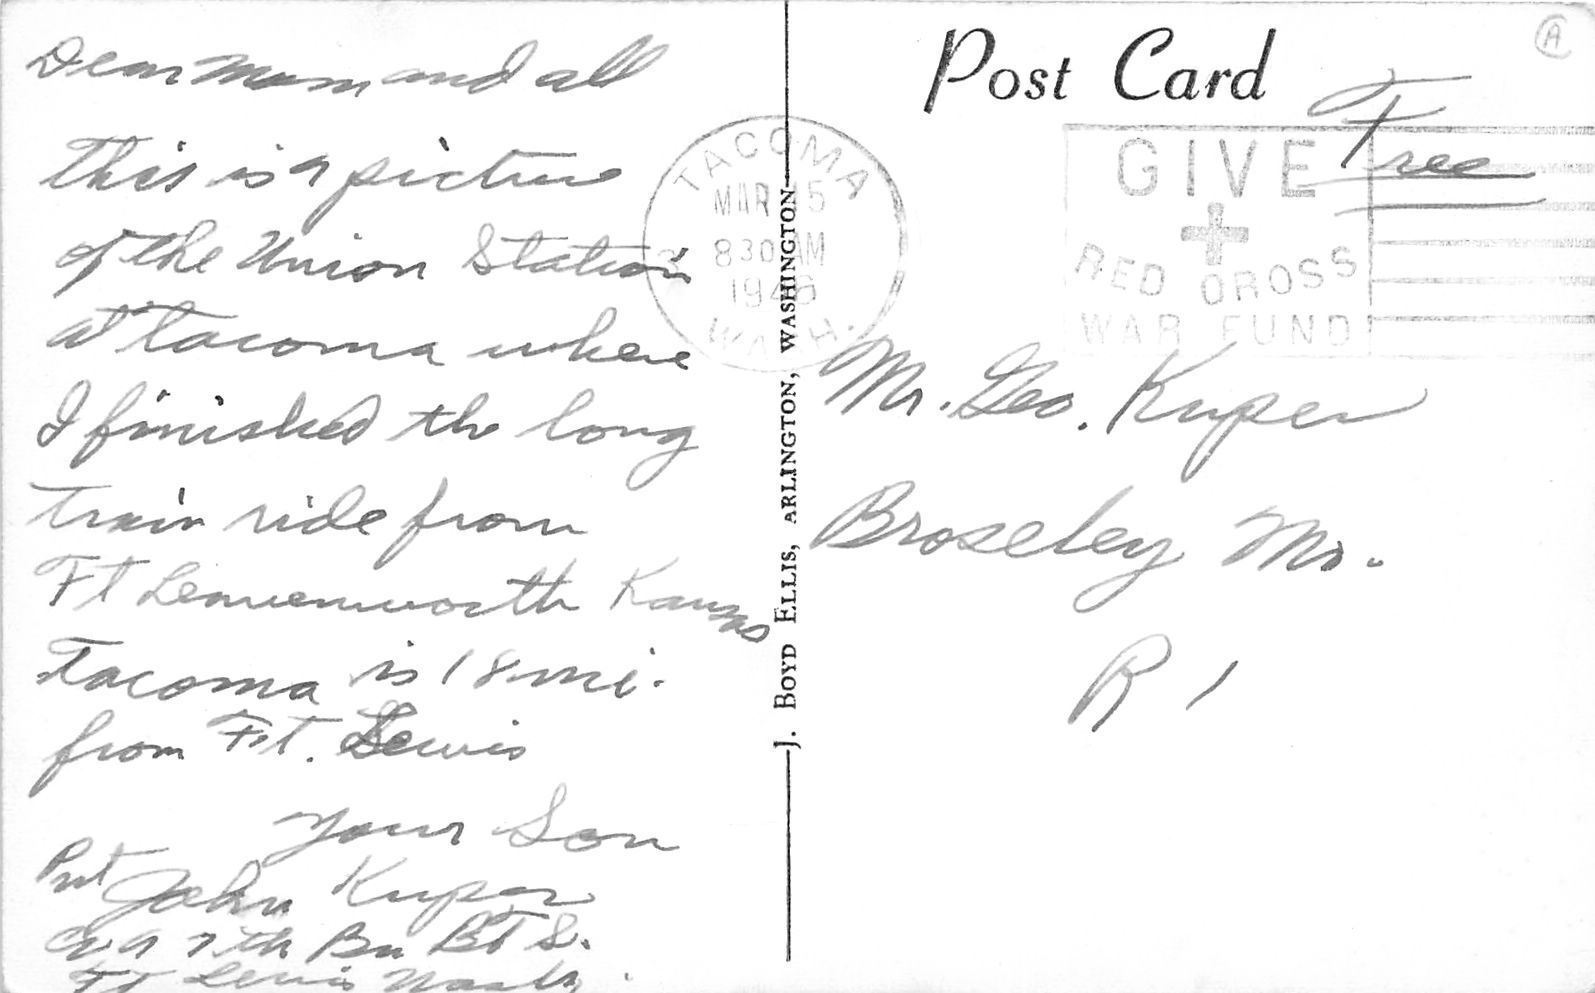 Dear Mom and all
this is a picture
of the Union Station
at Tacoma where
I finished the long
train ride from
Ft Leavenworth Kansas
Tacoma is 18 mi.
from Ft. Lewis
Your Son
Pvt John Kuper
Co A 7th Bn BTS.
Ft Lewis Wash.
TACOMA
MAR 5
8 30 AM
1946
WASH.
J. BOYD ELLIS, ARLINGTON, WASHINGTON
Post Card
A
Free
GIVE
RED CROSS
WAR FUND
Mr. Geo. Kuper
Broseley Mo.
R 1